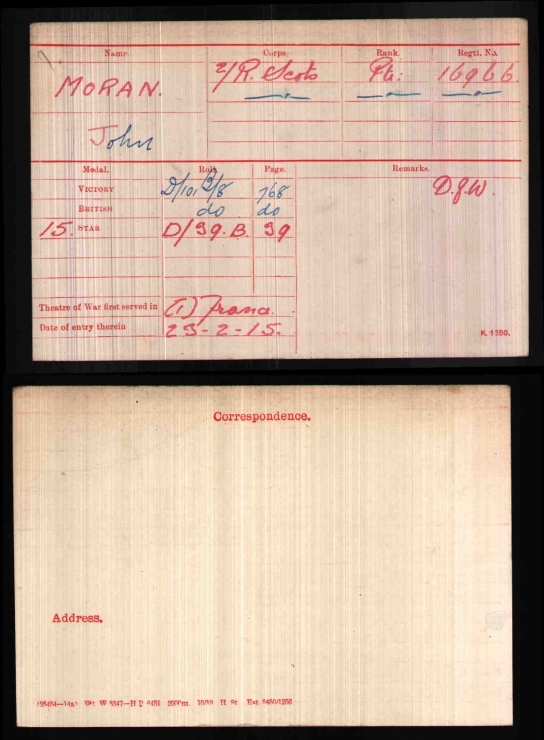 Name. Corps. Rank. Regtl. No.
MORAN. 2/R. Scots Pte. 16966.
John
Medal. Roll. Page. Remarks.
VICTORY D/101 B/8 768 D.of.W.
BRITISH do do
15 STAR D/39.B. 39
Theatre of War first served in (1) France.
Date of entry therein 23-2-15.
K. 1380.
Correspondence.
Address.